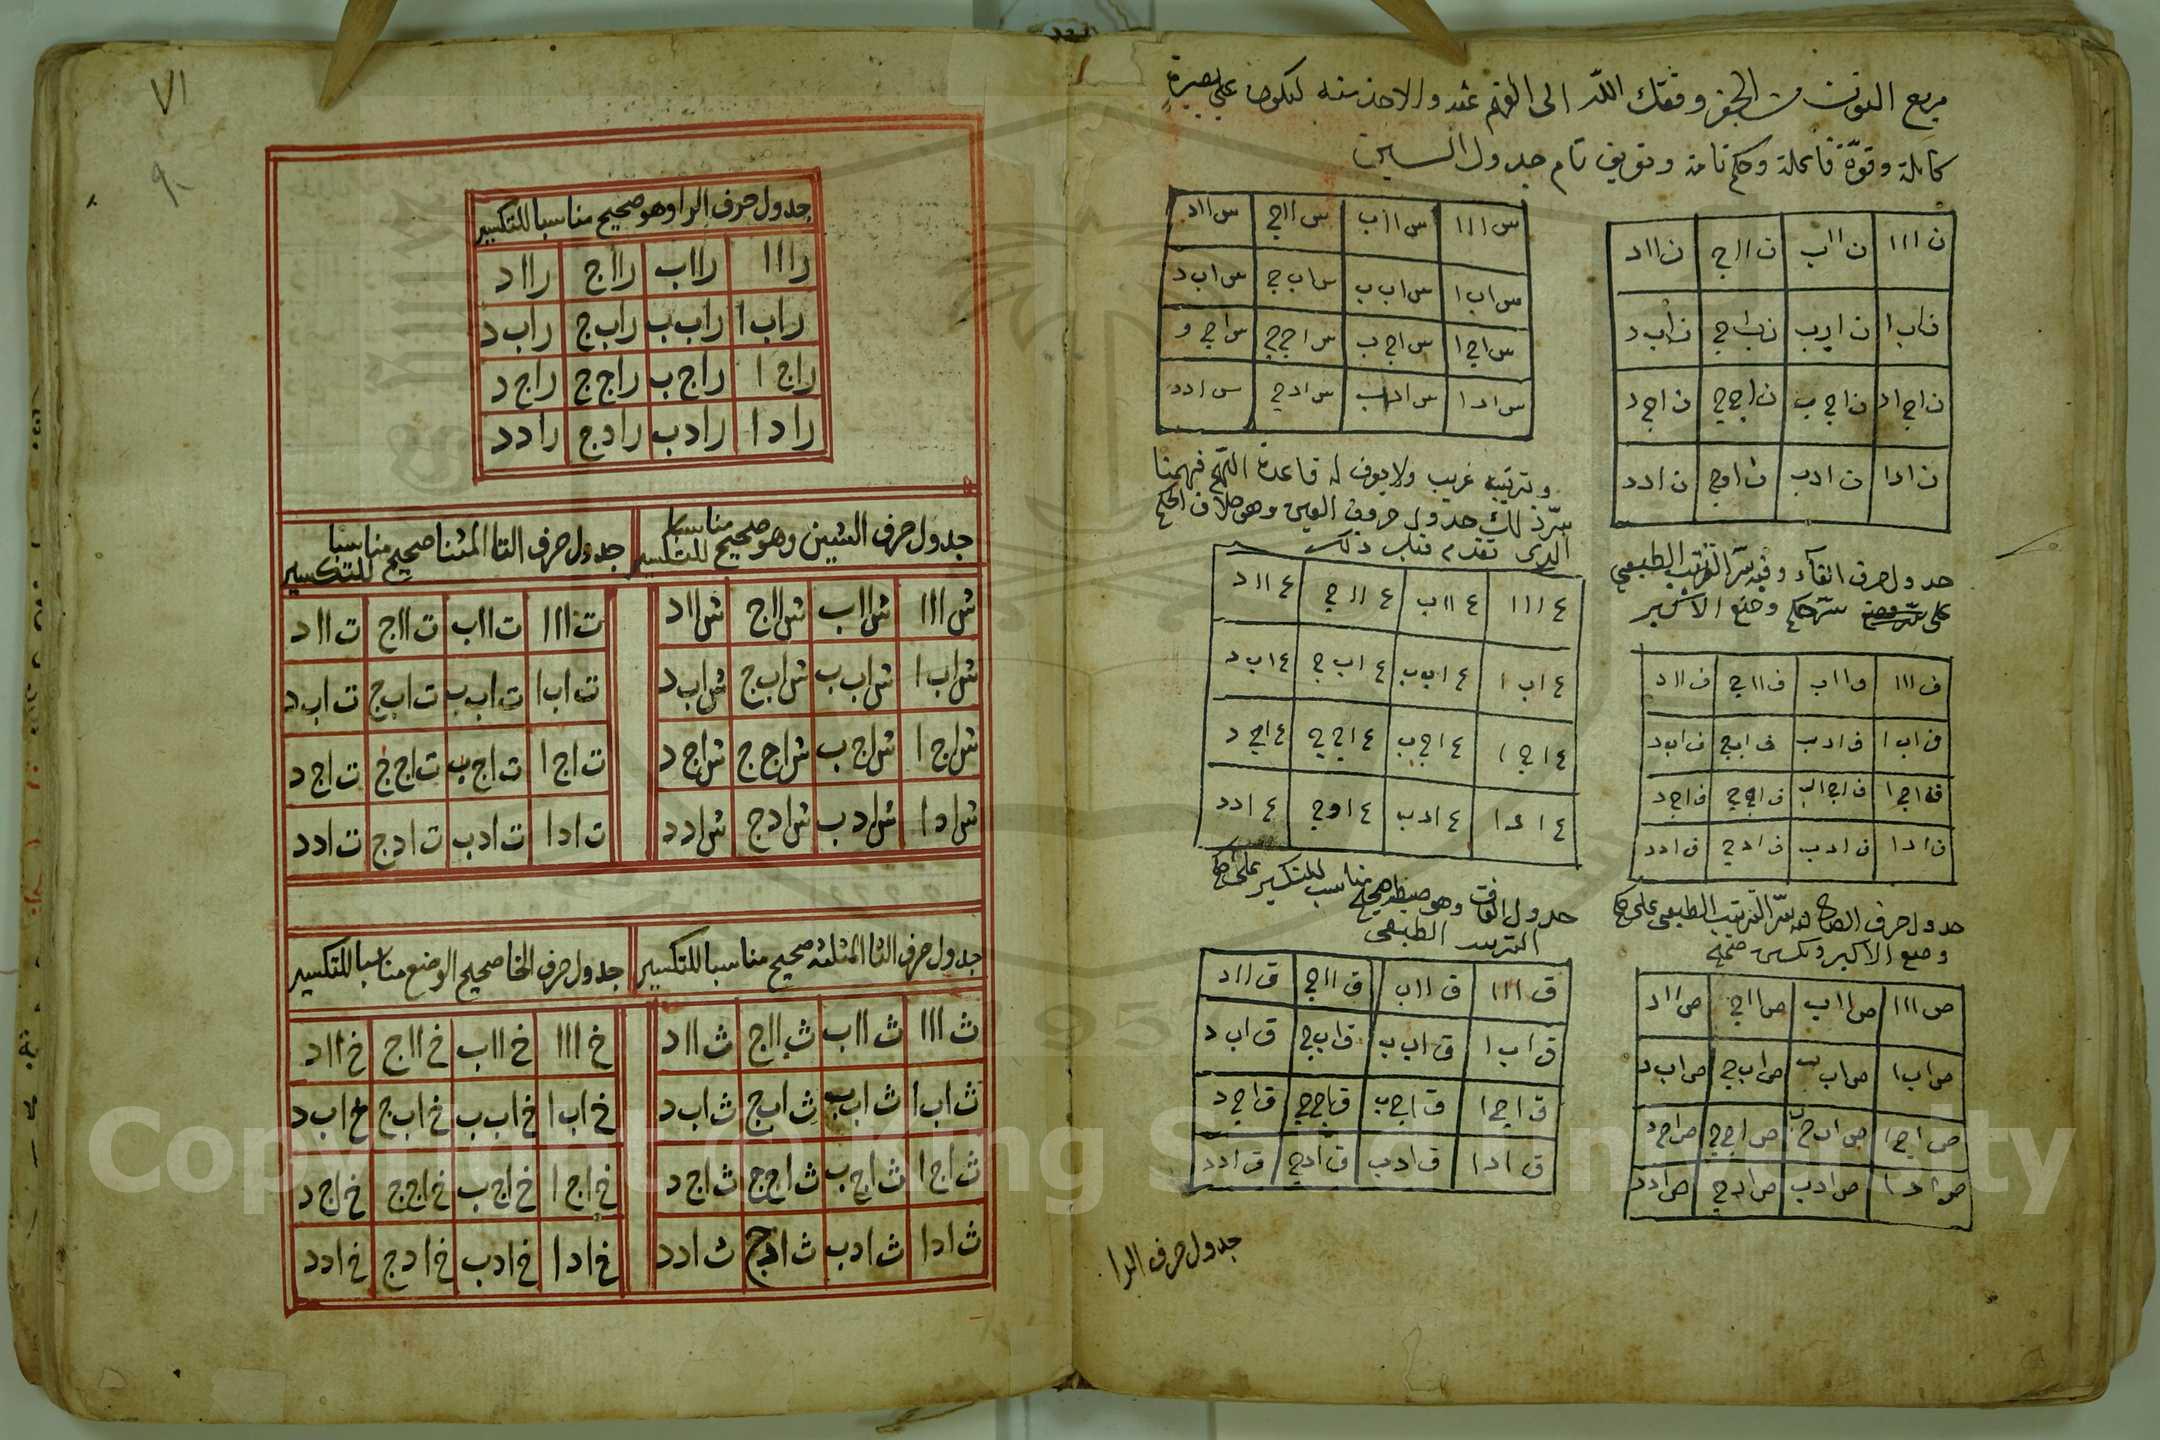 مربع النون من الجفر وفقك الله الى الفهم عنه والاخذ منه لتكون على بصيرة
كاملة وقوة فاعلة وحكم تامة وتعريف تام جدول السين
ن ا ا ا | ن ا ا ب | ن ا ا ج | ن ا ا د
ن ا ب ا | ن ا ب ب | ن ا ب ج | ن ا ب د
ن ا ج ا | ن ا ج ب | ن ا ج ج | ن ا ج د
ن ا د ا | ن ا د ب | ن ا د ج | ن ا د د
س ا ا ا | س ا ا ب | س ا ا ج | س ا ا د
س ا ب ا | س ا ب ب | س ا ب ج | س ا ب د
س ا ج ا | س ا ج ب | س ا ج ج | س ا ج د
س ا د ا | س ا د ب | س ا د ج | س ا د د
وترتيبه غريب ولا يعرف له قاعدة اللهم فهمنا
سر ذلك جدول حروف العين وهو خلاف الحكم
الذى تقدم قبل ذلك
ع ا ا ا | ع ا ا ب | ع ا ا ج | ع ا ا د
ع ا ب ا | ع ا ب ب | ع ا ب ج | ع ا ب د
ع ا ج ا | ع ا ج ب | ع ا ج ج | ع ا ج د
ع ا د ا | ع ا د ب | ع ا د ج | ع ا د د
جدول حرف الفاء وفيه سر الترتيب الطبيعى
على سر حكم وضع الاكبر
ف ا ا ا | ف ا ا ب | ف ا ا ج | ف ا ا د
ف ا ب ا | ف ا د ب | ف ا ب ج | ف ا ب د
ف ا ج ا | ف ا ج ب | ف ا ج ج | ف ا ج د
ف ا د ا | ف ا د ب | ف ا د ج | ف ا د د
جدول حرف الصاد سر الترتيب الطبيعى على حكم
وضع الاكبر
ص ا ا ا | ص ا ا ب | ص ا ا ج | ص ا ا د
ص ا ب ا | ص ا ب ب | ص ا ب ج | ص ا ب د
ص ا ج ا | ص ا ج ب | ص ا ج ج | ص ا ج د
ص ا د ا | ص ا د ب | ص ا د ج | ص ا د د
جدول القاف وهو صحيح مناسب للتكسير على حكم
الترتيب الطبيعى
ق ا ا ا | ق ا ا ب | ق ا ا ج | ق ا ا د
ق ا ب ا | ق ا ب ب | ق ا ب ج | ق ا ب د
ق ا ج ا | ق ا ج ب | ق ا ج ج | ق ا ج د
ق ا د ا | ق ا د ب | ق ا د ج | ق ا د د
جدول حرف الرا
٧١
٩٠
جدول حرف الرا وهو صحيح مناسبا للتكسير
ر ا ا ا | ر ا ا ب | ر ا ا ج | ر ا ا د
ر ا ب ا | ر ا ب ب | ر ا ب ج | ر ا ب د
ر ا ج ا | ر ا ج ب | ر ا ج ج | ر ا ج د
ر ا د ا | ر ا د ب | ر ا د ج | ر ا د د
جدول حرف الشين وهو صحيح مناسبا للتكسير
ش ا ا ا | ش ا ا ب | ش ا ا ج | ش ا ا د
ش ا ب ا | ش ا ب ب | ش ا ب ج | ش ا ب د
ش ا ج ا | ش ا ج ب | ش ا ج ج | ش ا ج د
ش ا د ا | ش ا د ب | ش ا د ج | ش ا د د
جدول حرف التا المثنا صحيح مناسبا للتكسير
ت ا ا ا | ت ا ا ب | ت ا ا ج | ت ا ا د
ت ا ب ا | ت ا ب ب | ت ا ب ج | ت ا ب د
ت ا ج ا | ت ا ج ب | ت ا ج ج | ت ا ج د
ت ا د ا | ت ا د ب | ت ا د ج | ت ا د د
جدول حرف الثا المثلثه صحيح مناسبا للتكسير
ث ا ا ا | ث ا ا ب | ث ا ا ج | ث ا ا د
ث ا ب ا | ث ا ب ب | ث ا ب ج | ث ا ب د
ث ا ج ا | ث ا ج ب | ث ا ج ج | ث ا ج د
ث ا د ا | ث ا د ب | ث ا د ج | ث ا د د
جدول حرف الخا صحيح الوضع مناسبا للتكسير
خ ا ا ا | خ ا ا ب | خ ا ا ج | خ ا ا د
خ ا ب ا | خ ا ب ب | خ ا ب ج | خ ا ب د
خ ا ج ا | خ ا ج ب | خ ا ج ج | خ ا ج د
خ ا د ا | خ ا د ب | خ ا د ج | خ ا د د
1957
Copyright © King Saud University